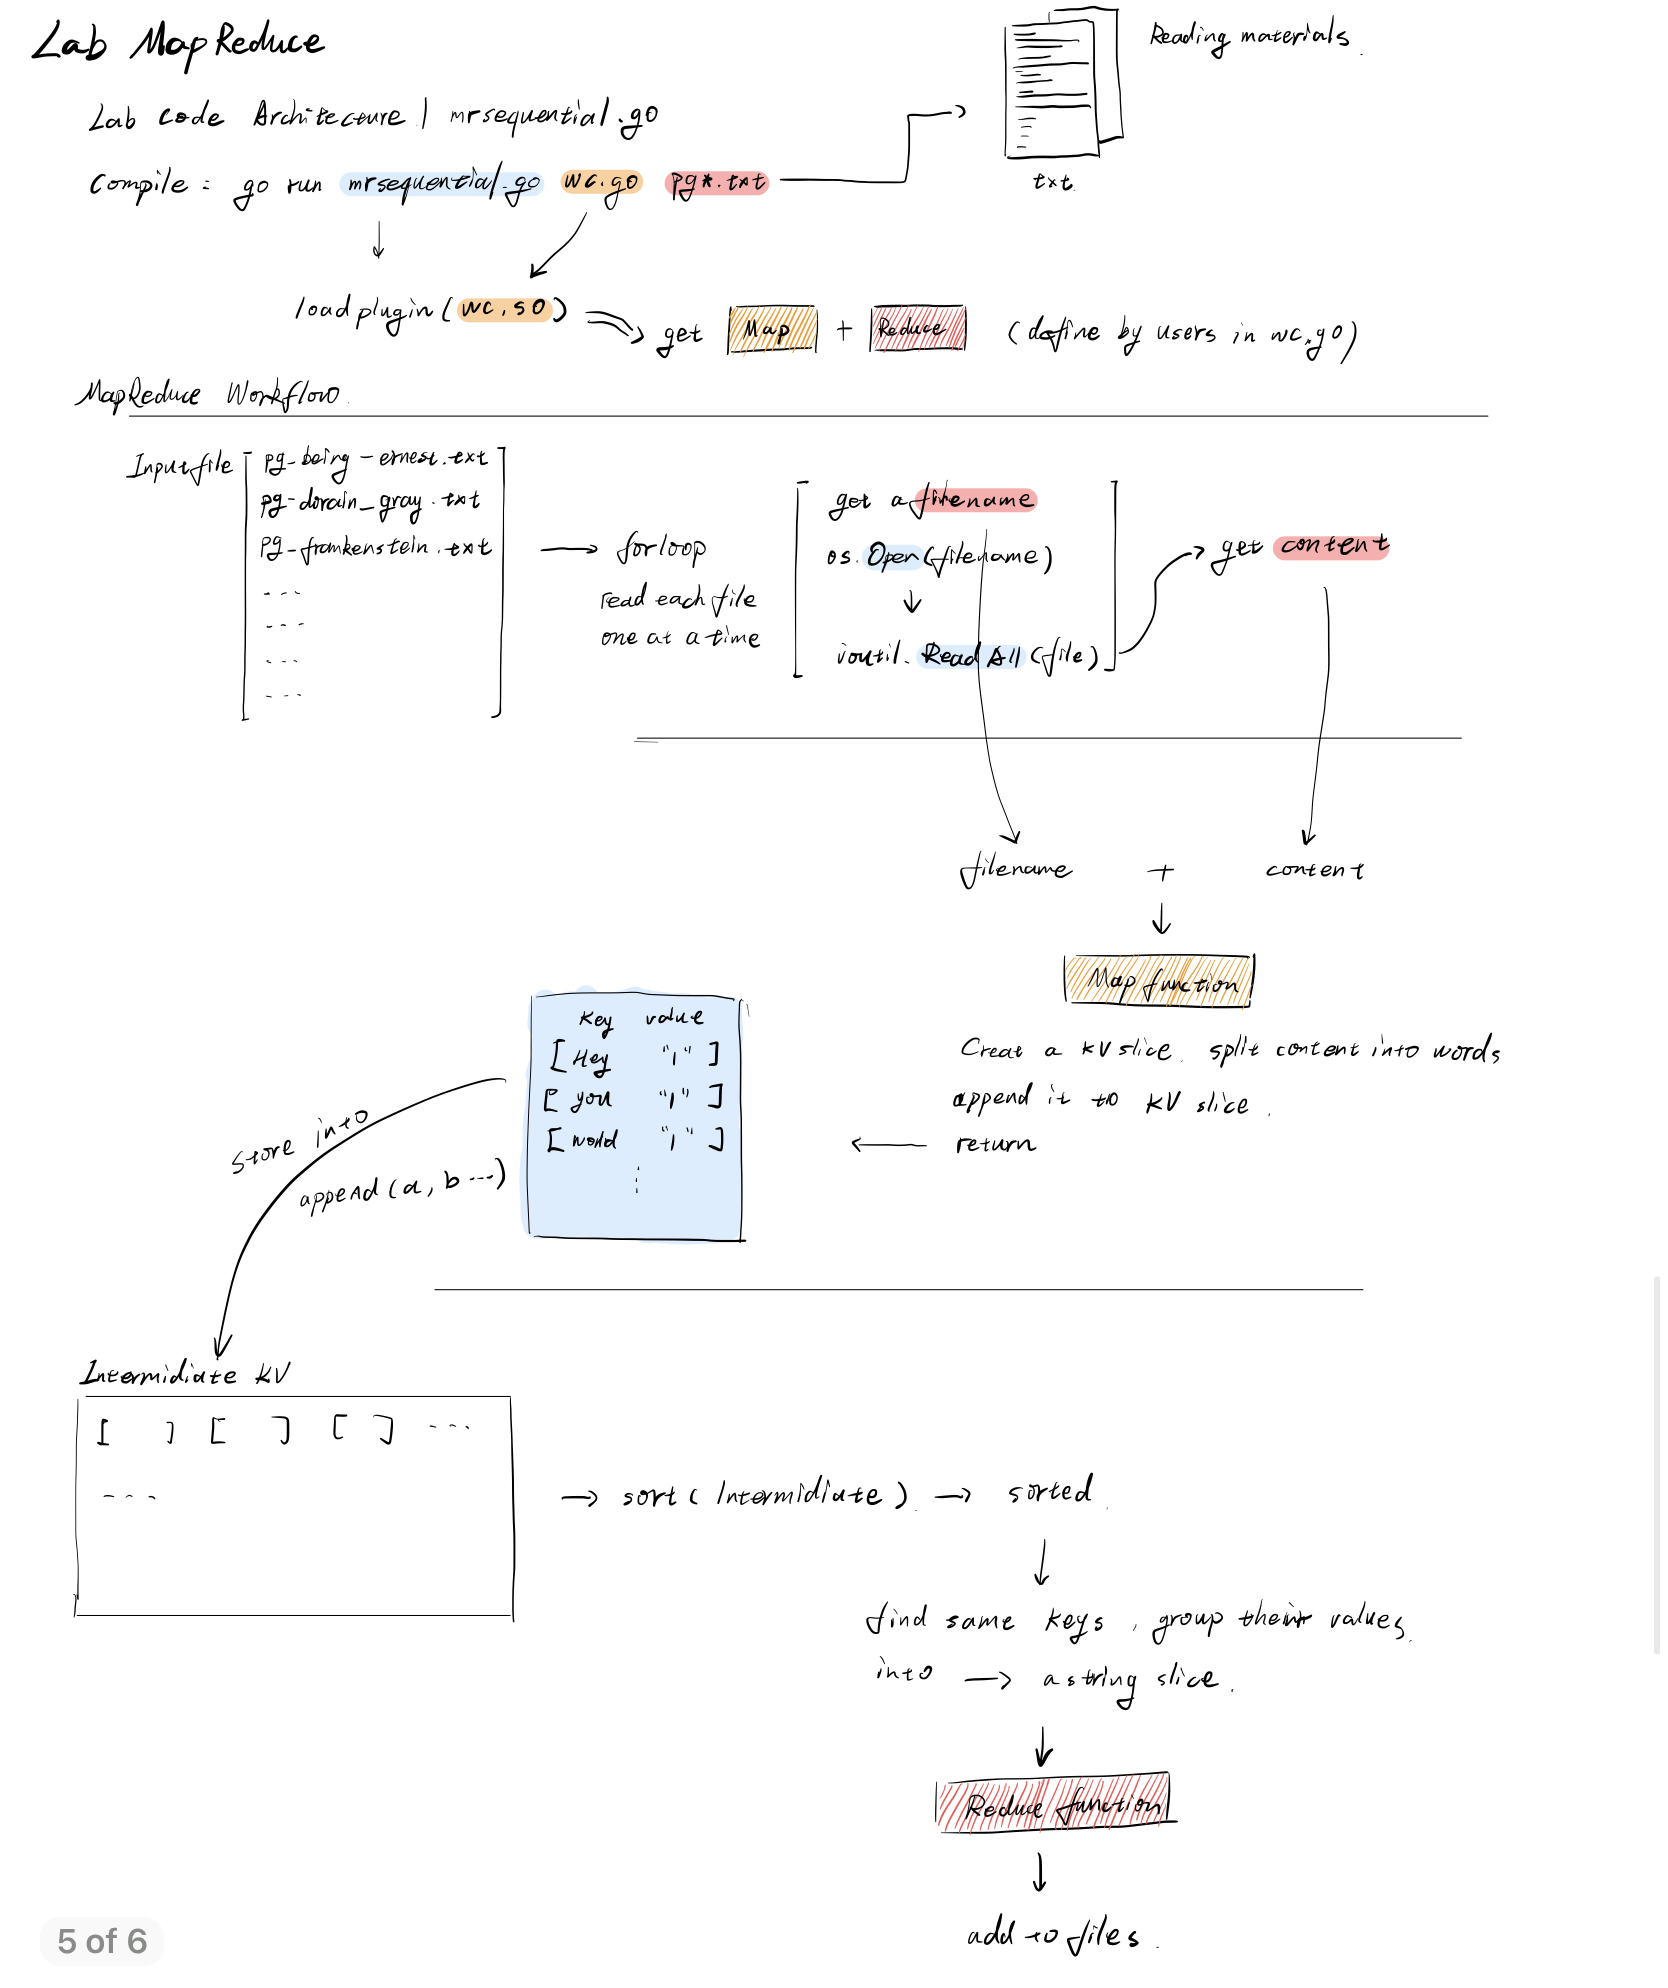 Lab MapReduce
Reading materials.
Lab Code Architecture | mrsequential.go
Compile: go run mrsequential.go wc.go pg*.txt
txt.
loadplugin(wc.so) get Map + Reduce (define by users in wc.go)
MapReduce Workflow.
Inputfile
pg-being-ernest.txt
pg-dorain_gray.txt
pg-frankenstein.txt
forloop
read each file
one at a time
get a filename
os.Open(filename)
ioutil.ReadAll(file)
get content
filename + content
Map function
Creat a KV slice. split content into words
append it to KV slice.
return
Key value
[Hey "1"]
[you "1"]
[world "1"]
store into
append(a, b...)
Intermidiate KV
[ ] [ ] [ ] ...
...
→ sort(Intermidiate). → sorted.
find same keys, group their values.
into → a string slice.
Reduce function
add to files.
5 of 6